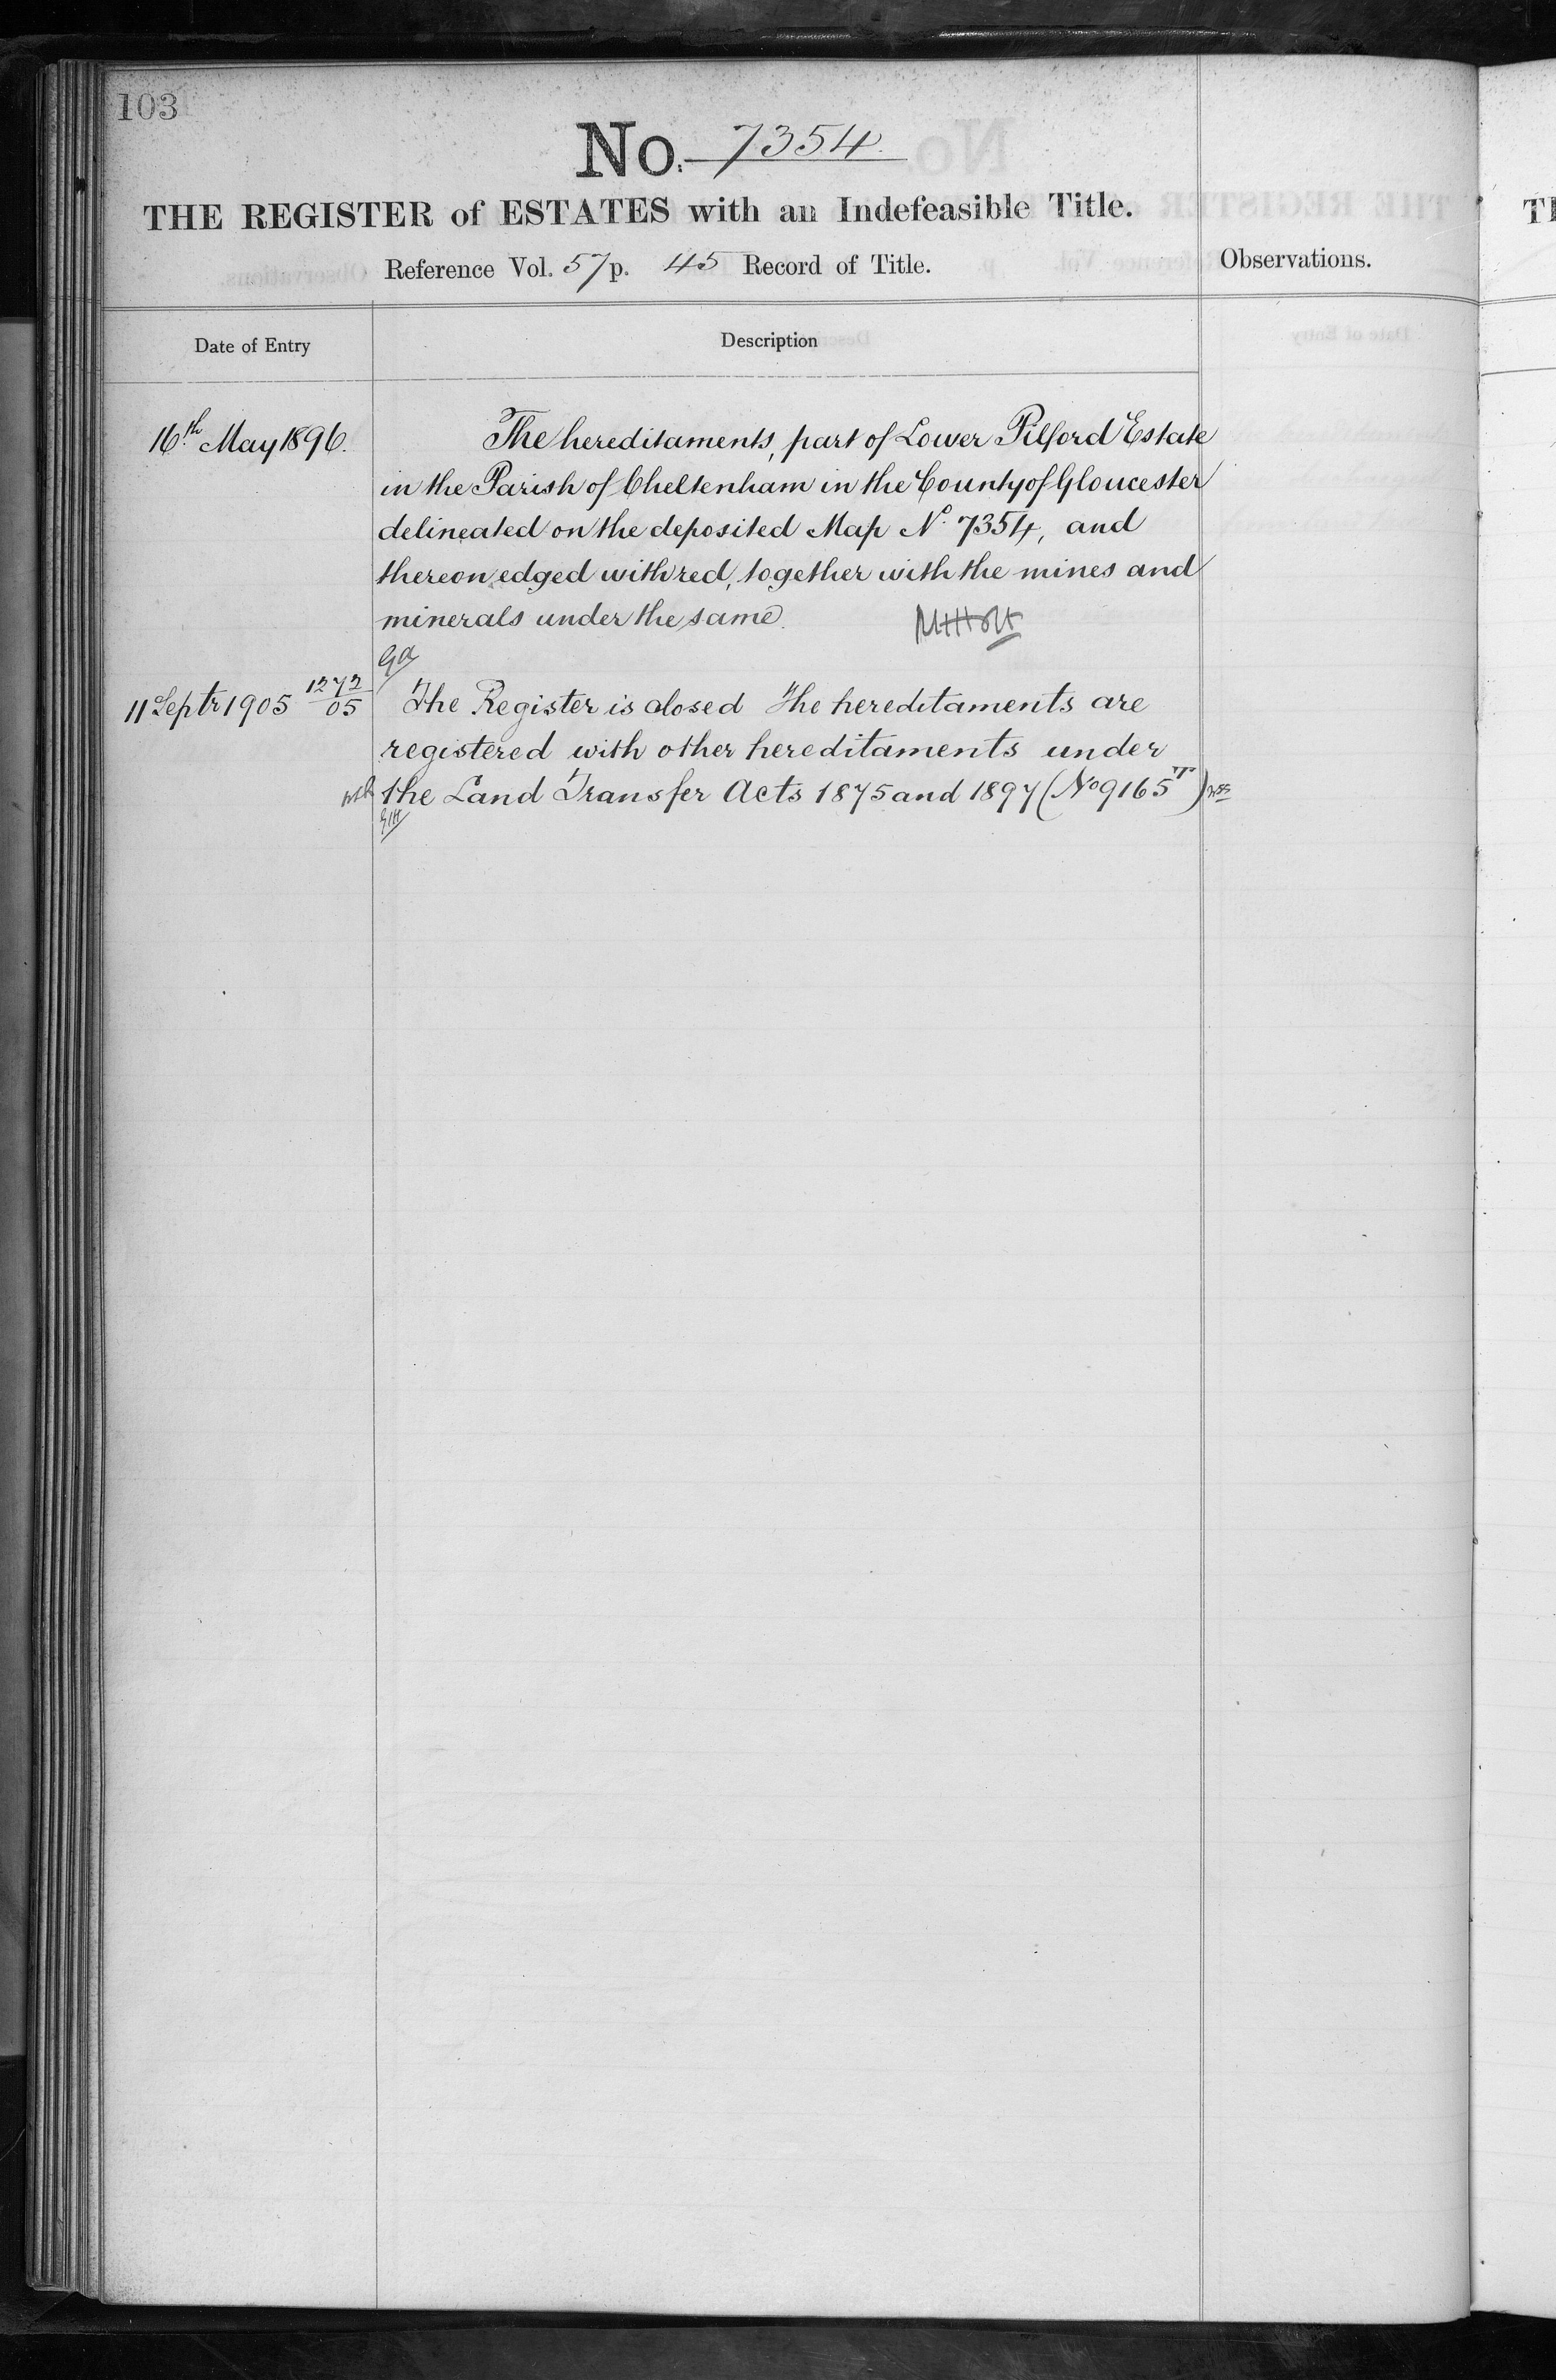 103
No. 7354.
THE REGISTER of ESTATES with an Indefeasible Title.
Reference Vol. 57 p. 45 Record of Title.
Observations.
Date of Entry
Description
16.th May 1896.
The hereditaments, part of Lower Pilford Estate
in the Parish of Cheltenham in the County of Gloucester
delineated on the deposited Map No. 7354, and
thereon edged with red, together with the mines and
minerals under the same.
GA
11 Septr 1905 1272/05
The Register is closed The hereditaments are
registered with other hereditaments under
the Land Transfer Acts 1875 and 1897 (No 9165T)